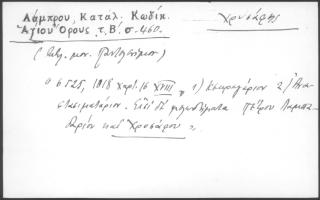 Λάμπρου, Καταλ. Κωδίκ.
Χρυσάφης
Ἁγίου Ὄρους τ. Β'. σ. 460.
( μον. Παντελεήμων)
ὁ 6525, 1018 χαρτ. 16 XVIII, 1) Κεκραγάριον 2) Ἀνα-
στασιματάριον. μελῳδήματα Πέτρου Λαμπα-
δαρίου καὶ Χρυσάφου